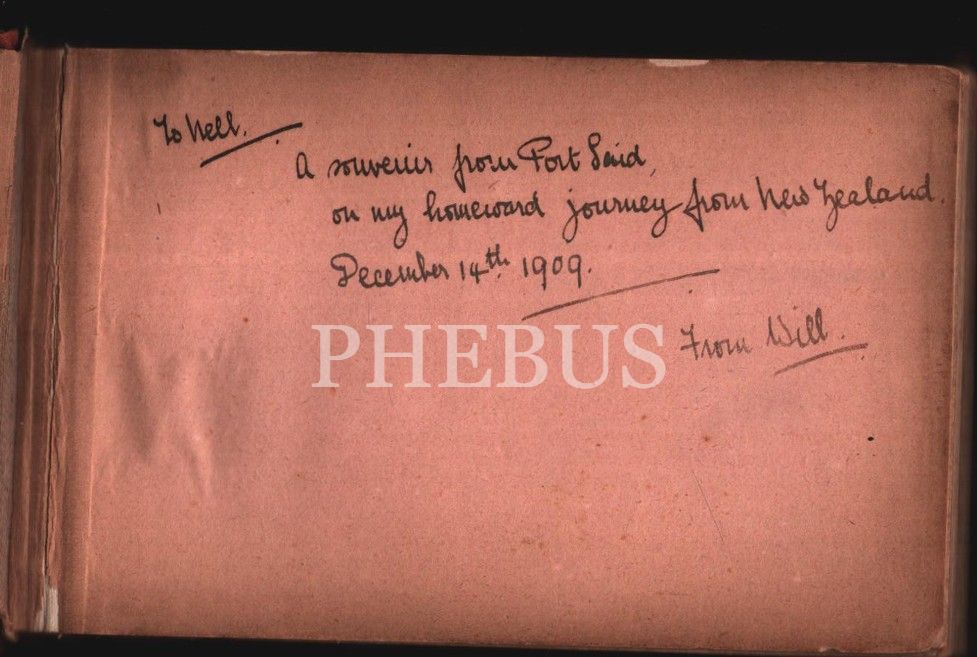 To Nell.
A souvenir from Port Said,
on my homeward journey from New Zealand.
December 14th 1909.
PHEBUS
From Will.